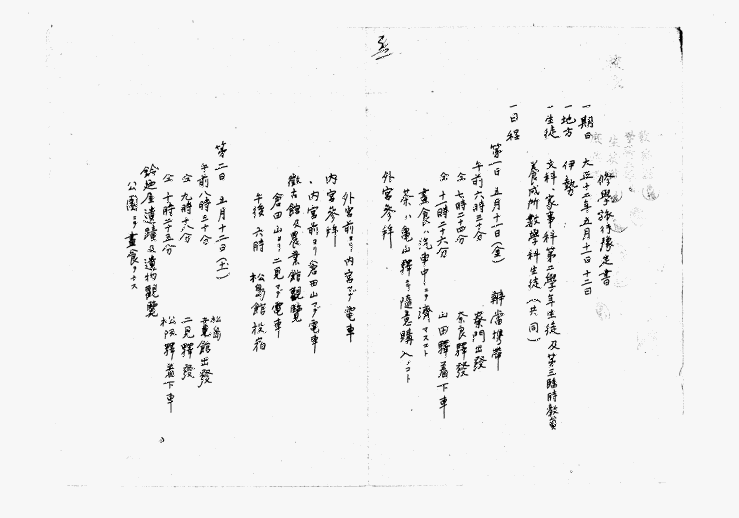 修學旅行豫定書
一期日　大正十二年五月十一日 十二日
一地方　伊勢
一生徒　文科・家事科第二學年生徒及第三臨時教員
養成所數學科生徒（共同）
一日程
第一日　五月十一日（金）　辨當携帶
午前六時三十分　校門出發
仝 七時二十四分　奈良驛發
仝 十一時二十六分　山田驛着下車
晝食ハ汽車中ニテ濟マスコト
茶ハ亀山驛ニテ隨意購入ノコト
外宮參拜
外宮前ヨリ内宮マデ電車
内宮參拜
内宮前ヨリ倉田山マデ電車
徴古館及農業館觀覽
倉田山ヨリ二見マデ電車
午後六時　松島館投宿
第二日　五月十二日（土）
午前八時三十分　松島館出發
仝 九時十八分　二見驛發
仝 十時二十五分　松阪驛着下車
鈴廼屋遺蹟及遺物觀覽
公園ニテ晝食ヲナス